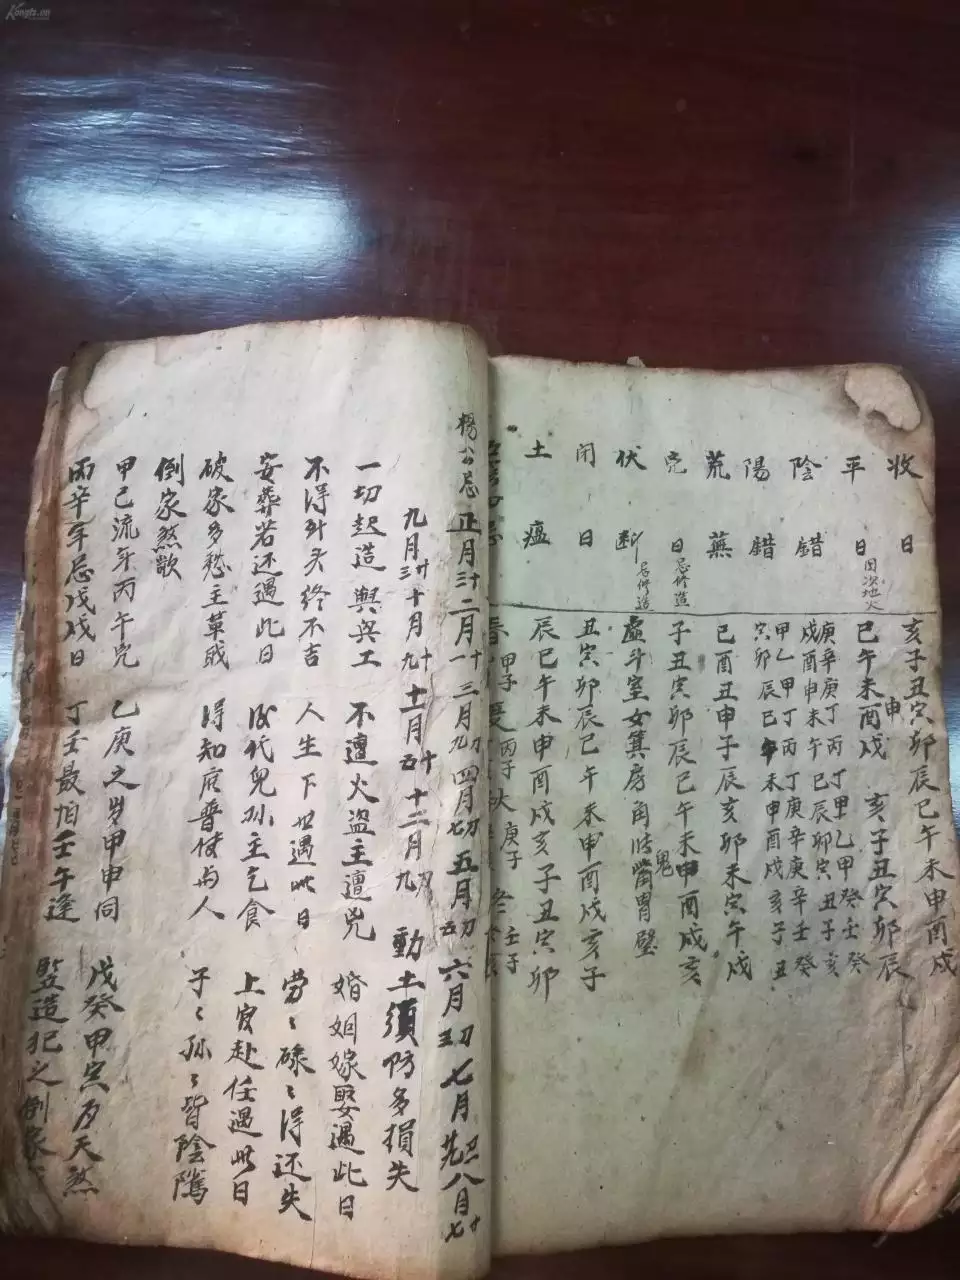 Kongfz.cn
收日 亥子丑寅卯辰巳午未申酉戌
平日 因次地火 巳午未申酉戌亥子丑寅卯辰
陰錯 庚辛庚丁丙丁甲乙甲癸壬癸
戌酉申未午巳辰卯寅丑子亥
陽錯 甲乙甲丁丙丁庚辛庚辛壬癸
寅卯辰巳午未申酉戌亥子丑
荒蕪 巳酉丑申子辰亥卯未寅午戌
日忌修造 子丑寅卯辰巳午未申酉戌亥
伏斷 忌修造 虛斗室女箕房角 觜胃壁
鬼
閉日 丑寅卯辰巳午未申酉戌亥子
土瘟 辰巳午未申酉戌亥子丑寅卯
春 甲子 夏 丙子 秋 庚子 冬 壬子
楊公忌 正月十三 二月十一 三月初九 四月初七 五月初五 六月初三 七月初一 廿九 八月廿七
九月廿三 十月十九 十一月十五 十二月初九 動土須防多損失
一切起造與興工 不遭火盜主遭兇 婚姻嫁娶遇此日
不得到头終不吉 人生下世遇此日 劳〻碌〻得还失
安葬若还遇此日 後代兒孙主乞食 上官赴任遇此日
破家多愁主草賊 得知 普使与人 子〻孙〻皆陰隲
倒家煞歌
甲己流年丙午 乙庚之岁甲申同 戊癸甲寅 天煞
丙辛年忌戊戌日 丁壬最怕壬午逢 竪造犯之倒家